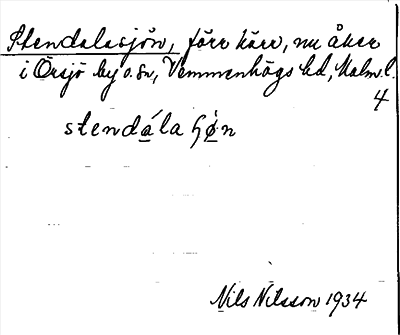 Stendalasjön, förr kärr, nu åker
i Örsjö by o. sn, Vemmenhögs hd, Malm. l.
4
stendála ɧǿn
Nils Nilsson 1934